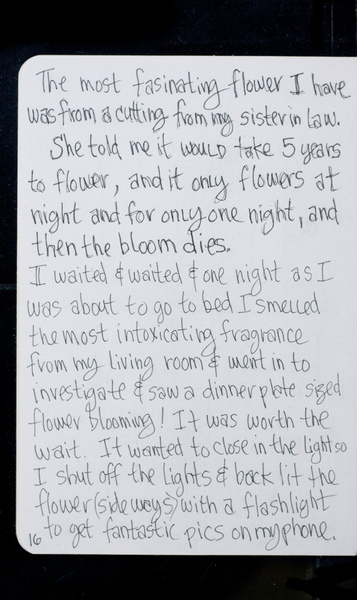 The most fasinating flower I have
was from a cutting from my sister in law.
She told me it would take 5 years
to flower, and it only flowers at
night and for only one night, and
then the bloom dies.
I waited & waited & one night as I
was about to go to bed I smelled
the most intoxicating fragrance
from my living room & went in to
investigate & saw a dinner plate sized
flower blooming! It was worth the
wait. It wanted to close in the light so
I shut off the lights & back lit the
flower (side ways) with a flashlight
to get fantastic pics on my phone.
16